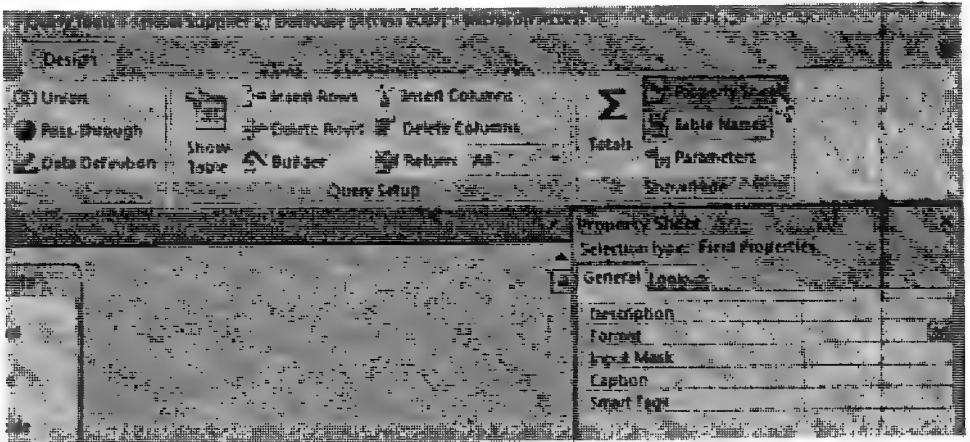 Query Tools
Design
Union
Pass-Through
Data Definition
Show
Table
Insert Rows
Delete Rows
Builder
Insert Columns
Delete Columns
Return: All
Query Setup
Totals
Property Sheet
Table Names
Parameters
Show/Hide
Property Sheet
Selection type: Field Properties
General Lookup
Description
Format
Input Mask
Caption
Smart Tags